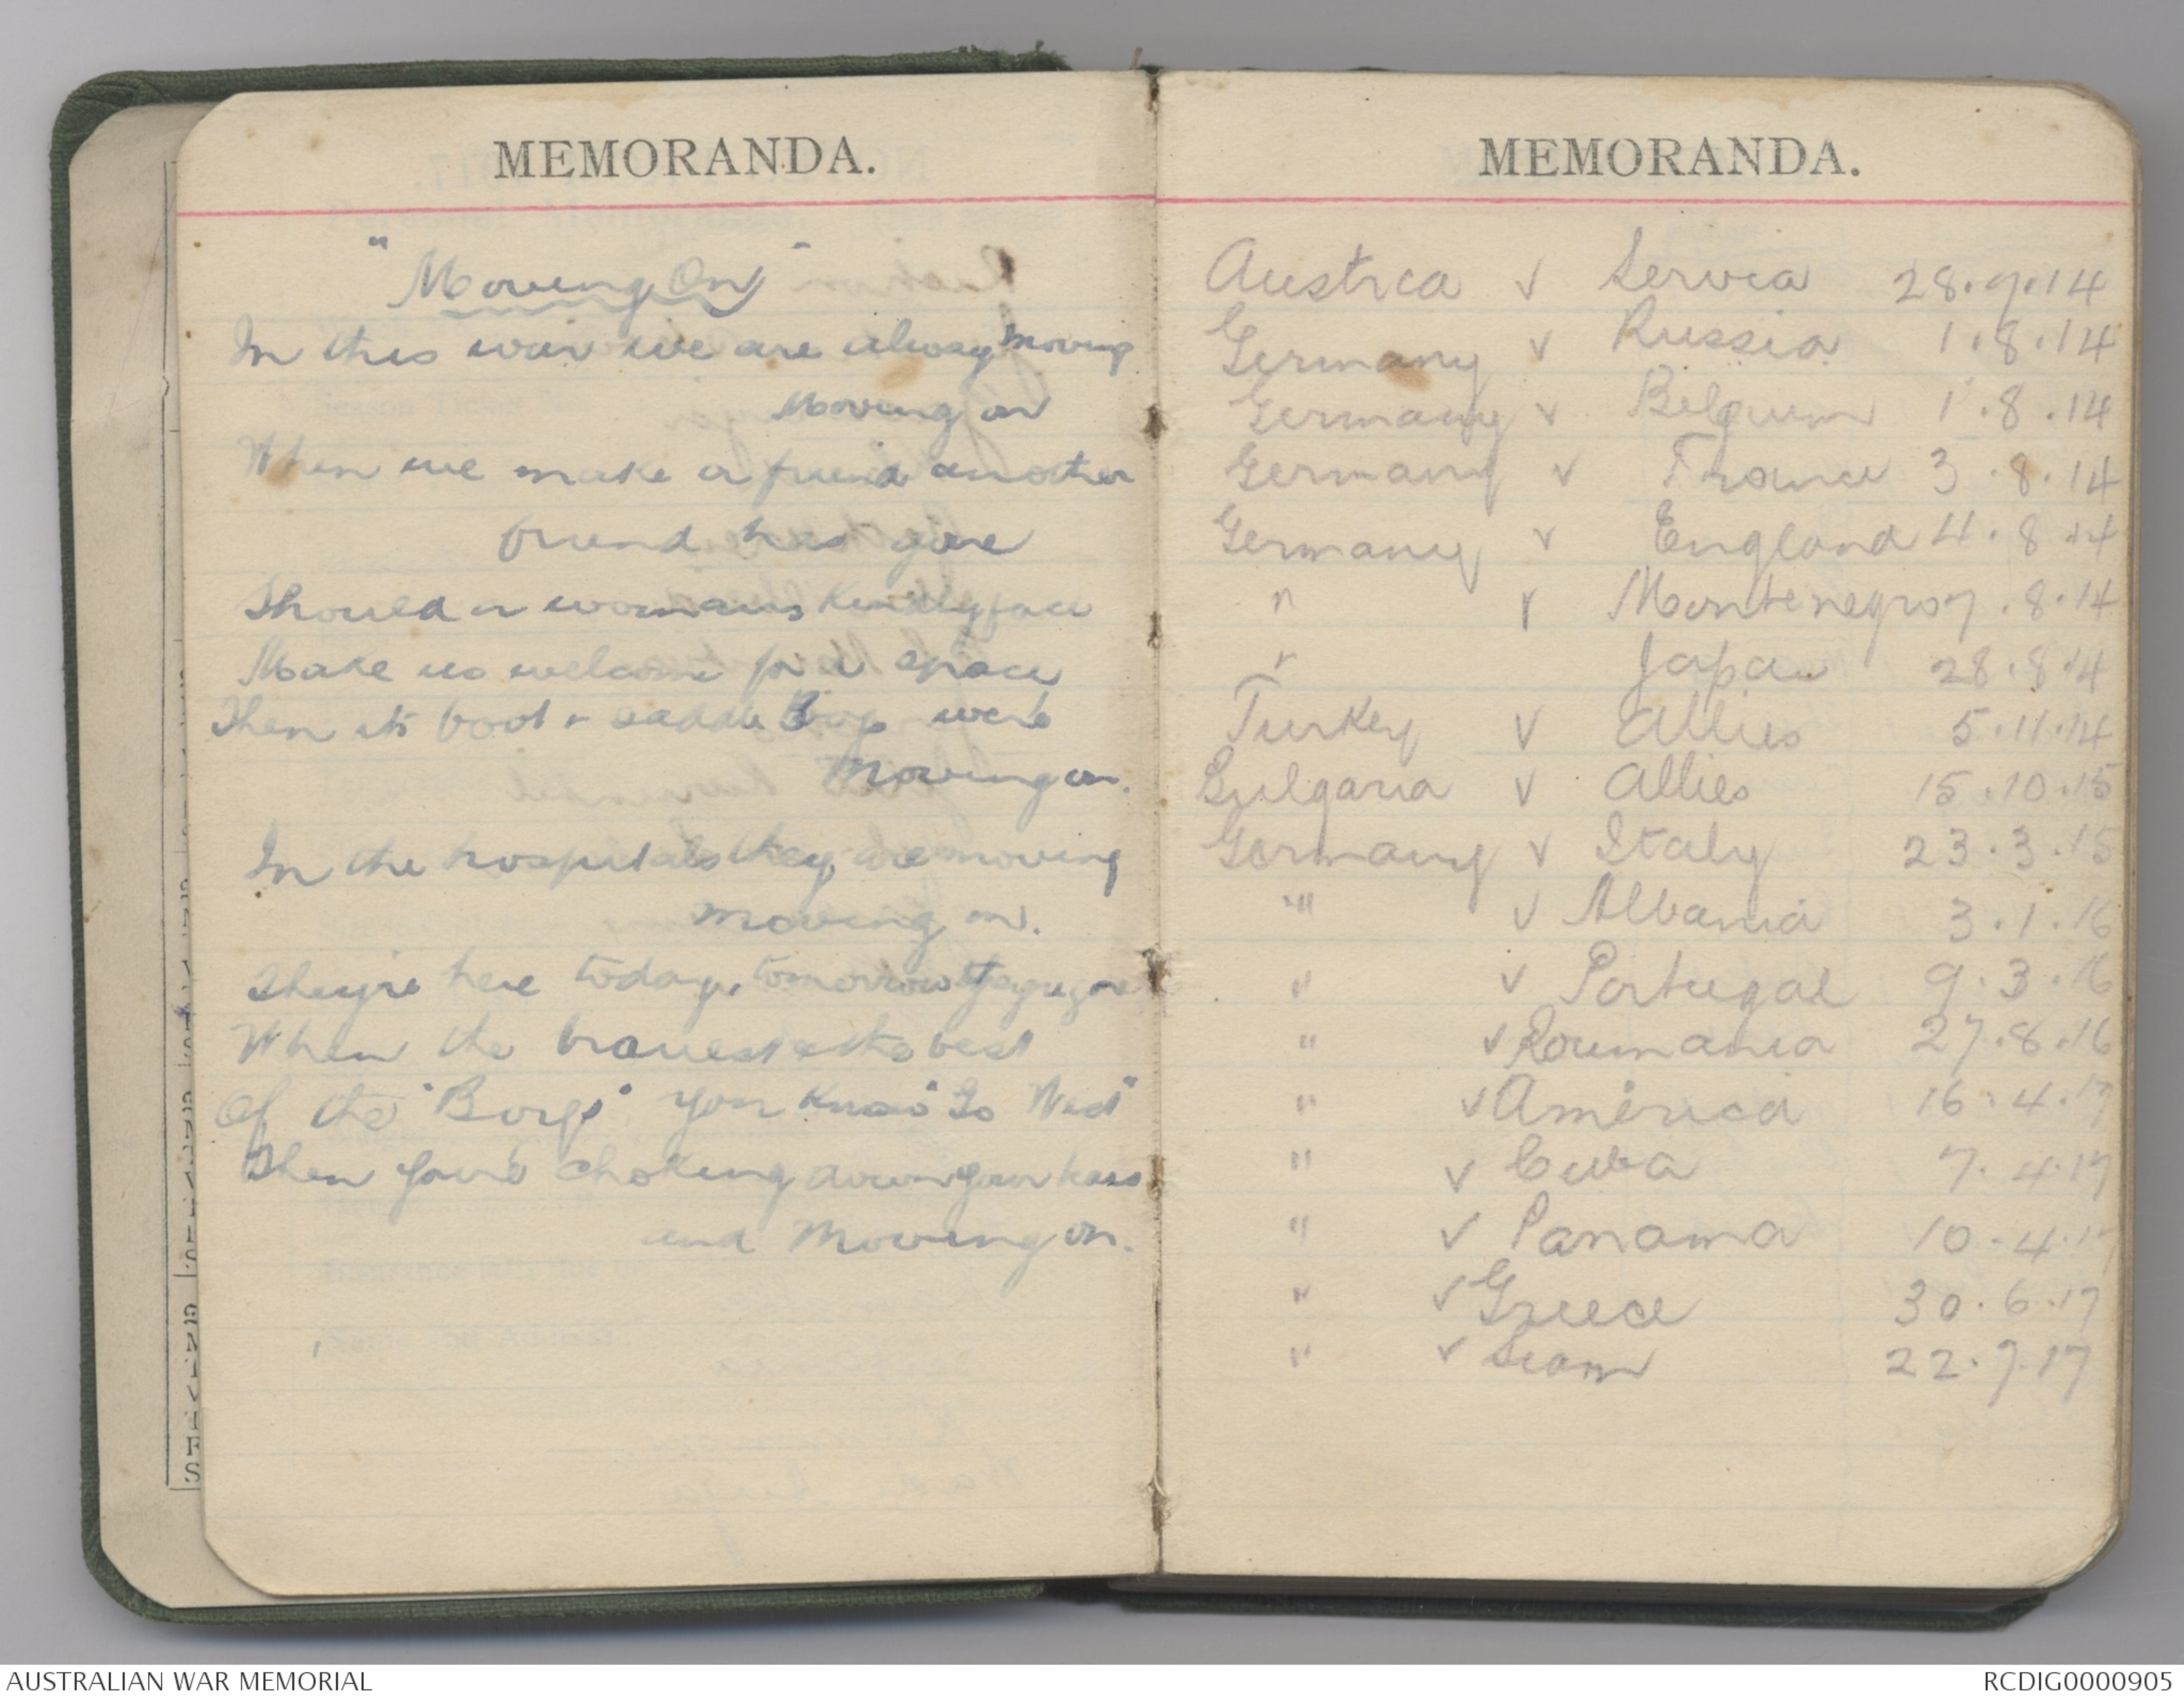 MEMORANDA.
"Moving On"
In this war we are alway moving
Moving on
When we make a friend another
friend has gone
Should a womans kindly face
Make us welcome for a space
Then its boot & saddle Boys were
Moving on.
In the hospitals they are moving
moving on.
They're here today, tomorrow they're gone
When the bravest & the best
Of the "Boys" you know "Go West"
Then you're choking down your tears
and Moving on.
MEMORANDA.
Austria v Servia 28.9.14
Germany v Russia 1.8.14
Germany v Belgium 1.8.14
Germany v France 3.8.14
Germany v England 4.8.14
" v Montenegro 7.8.14
" Japan 28.8.14
Turkey v Allies 5.11.14
Bulgaria v Allies 15.10.15
Germany v Italy 23.3.15
" v Albania 3.1.16
" v Portugal 9.3.16
" v Roumania 27.8.16
" v America 16.4.17
" v Cuba 7.4.17
" v Panama 10.4.17
" v Greece 30.6.17
" v Siam 22.7.17
AUSTRALIAN WAR MEMORIAL
RCDIG0000905